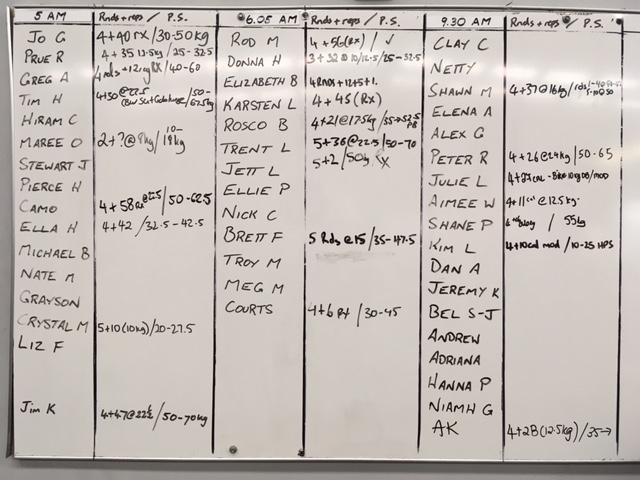 5 AM Rnds + reps / P.S.
Jo G 4+40 RX /30-50kg
Prue R 4+35 12.5kg / 25-32.5
Greg A 4 rnds +12 RX /40-60
Tim H 4+50@22.5 /50-67.5kg
Hiram C
Maree O 2+?@9kg / 10-19kg
Stewart J
Pierce H
Camo 4+58 @22.5 /50-62.5
Ella H 4+42 /32.5-42.5
Michael B
Nate M
Grayson
Crystal M 5+10(10kg)/20-27.5
Liz F
Jim K 4+47@22½ /50-70kg
6.05 AM Rnds + reps / P.S.
Rod M 4+56(Rx) / ✓
Donna H 3+32@10/12.5/25-32.5
Elizabeth B 4 Rnds +12+5+1.
Karsten L 4+45 (Rx)
Rosco B 4+21@17.5kg /35→52.5 PB
Trent L 5+36@22.5/50-70
Jett L 5+2 /50kg
Ellie P
Nick C
Brett F 5 Rds @15 /35-47.5
Troy M
Meg M
Courts 4+6 Rx /30-45
9.30 AM Rnds + reps / P.S.
Clay C
Netty
Shawn M 4+37@16kg /
Elena A
Alex G
Peter R 4+26@24kg /50-65
Julie L 4+27cal - Bike 10kg DB/mod
Aimee W 4+11cal @12.5kg
Shane P / 55kg
Kim L 4+10cal mod /10-25 HPS
Dan A
Jeremy K
Bel S-J
Andrew
Adriana
Hanna P
Niamh G
AK 4+28(12.5kg)/35→